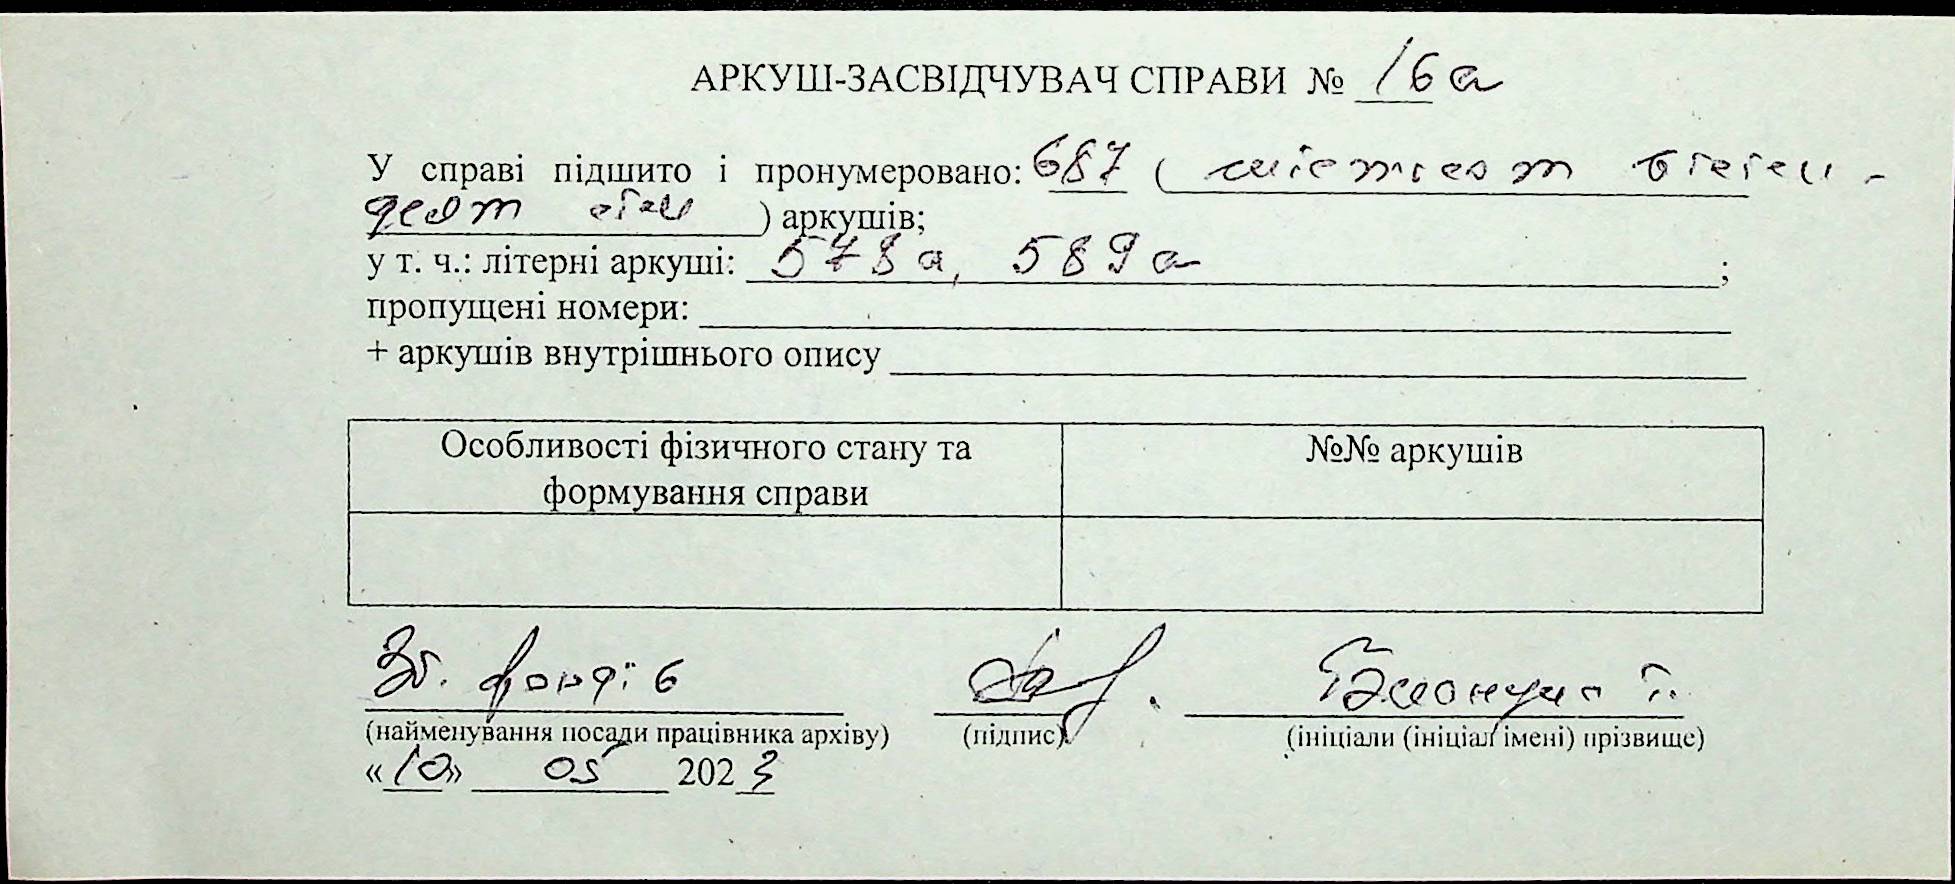 АРКУШ-ЗАСВІДЧУВАЧ СПРАВИ № 16а
У справі підшито і пронумеровано: 687 ( шістсот вісім-
десят сім ) аркушів;
у т. ч.: літерні аркуші: 578а, 589а ;
пропущені номери:
+ аркушів внутрішнього опису
Особливості фізичного стану та
формування справи
№№ аркушів
Зб. фондів
(найменування посади працівника архіву) (підпис) (ініціали (ініціал імені) прізвище)
«10» 05 2023